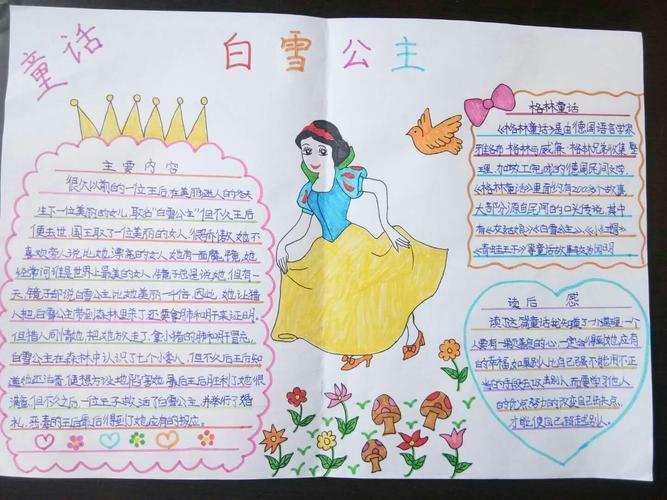 童话
白雪公主
主要内容
很久以前的一位王后在美丽迷人的冬天
生下一位美丽的女儿,取名"白雪公主"但不久王后
便去世,国王取了一位美丽的女人很骄傲,她不
喜欢旁人说比她漂亮的女人她有面魔镜,她
经常问谁是世界上最美的女人,镜子总是说她,但有一
天,镜子却说白雪公主比她美丽一千倍。因此,她让猎
人把白雪公主带到森林里杀了还要拿肺和肝来证明,
但猎人同情她,把她放走了,拿小猪的肺和肝冒充,
白雪公主在森林中认识了七个小矮人,但不久后王后知
道她还活着,便想方设法地陷害她,最后王后胜利了她很
满意,但不久之后,一位王子救活了白雪公主,并举行了婚
礼,恶毒的王后最后得到了她应有的报应。
格林童话
《格林童话》是由德国语言学家
雅各布·格林与威廉·格林兄弟收集、整
理、加改工完成的德国民间文学,
《格林童话》里面约有200多个故事,
大部分源自民间的口头传说,其中
有《灰姑娘》《白雪公主》《小红帽》
《青蛙王子》等童话故事较为闻明
读后感
读了这篇童话我知道了一个道理,一个
人要有一颗善良的心,一定会得到她应有
的幸福,如果别人比自己强不能用不正
当的手段去攻击别人,而要学习他人
的优点努力的改变自己的缺点,
才能使自己超越别人。